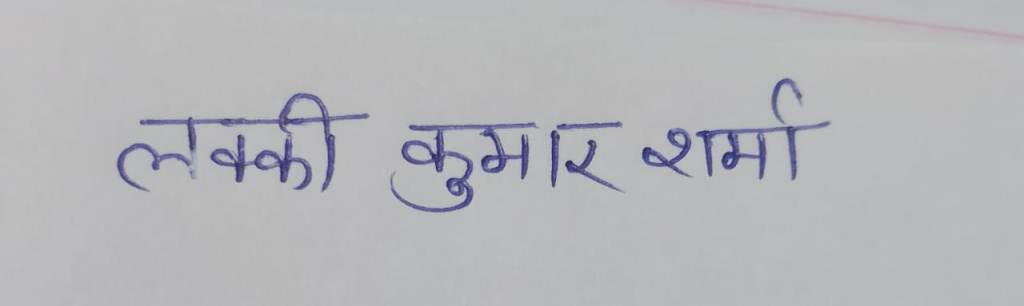 लक्की कुमार शर्मा